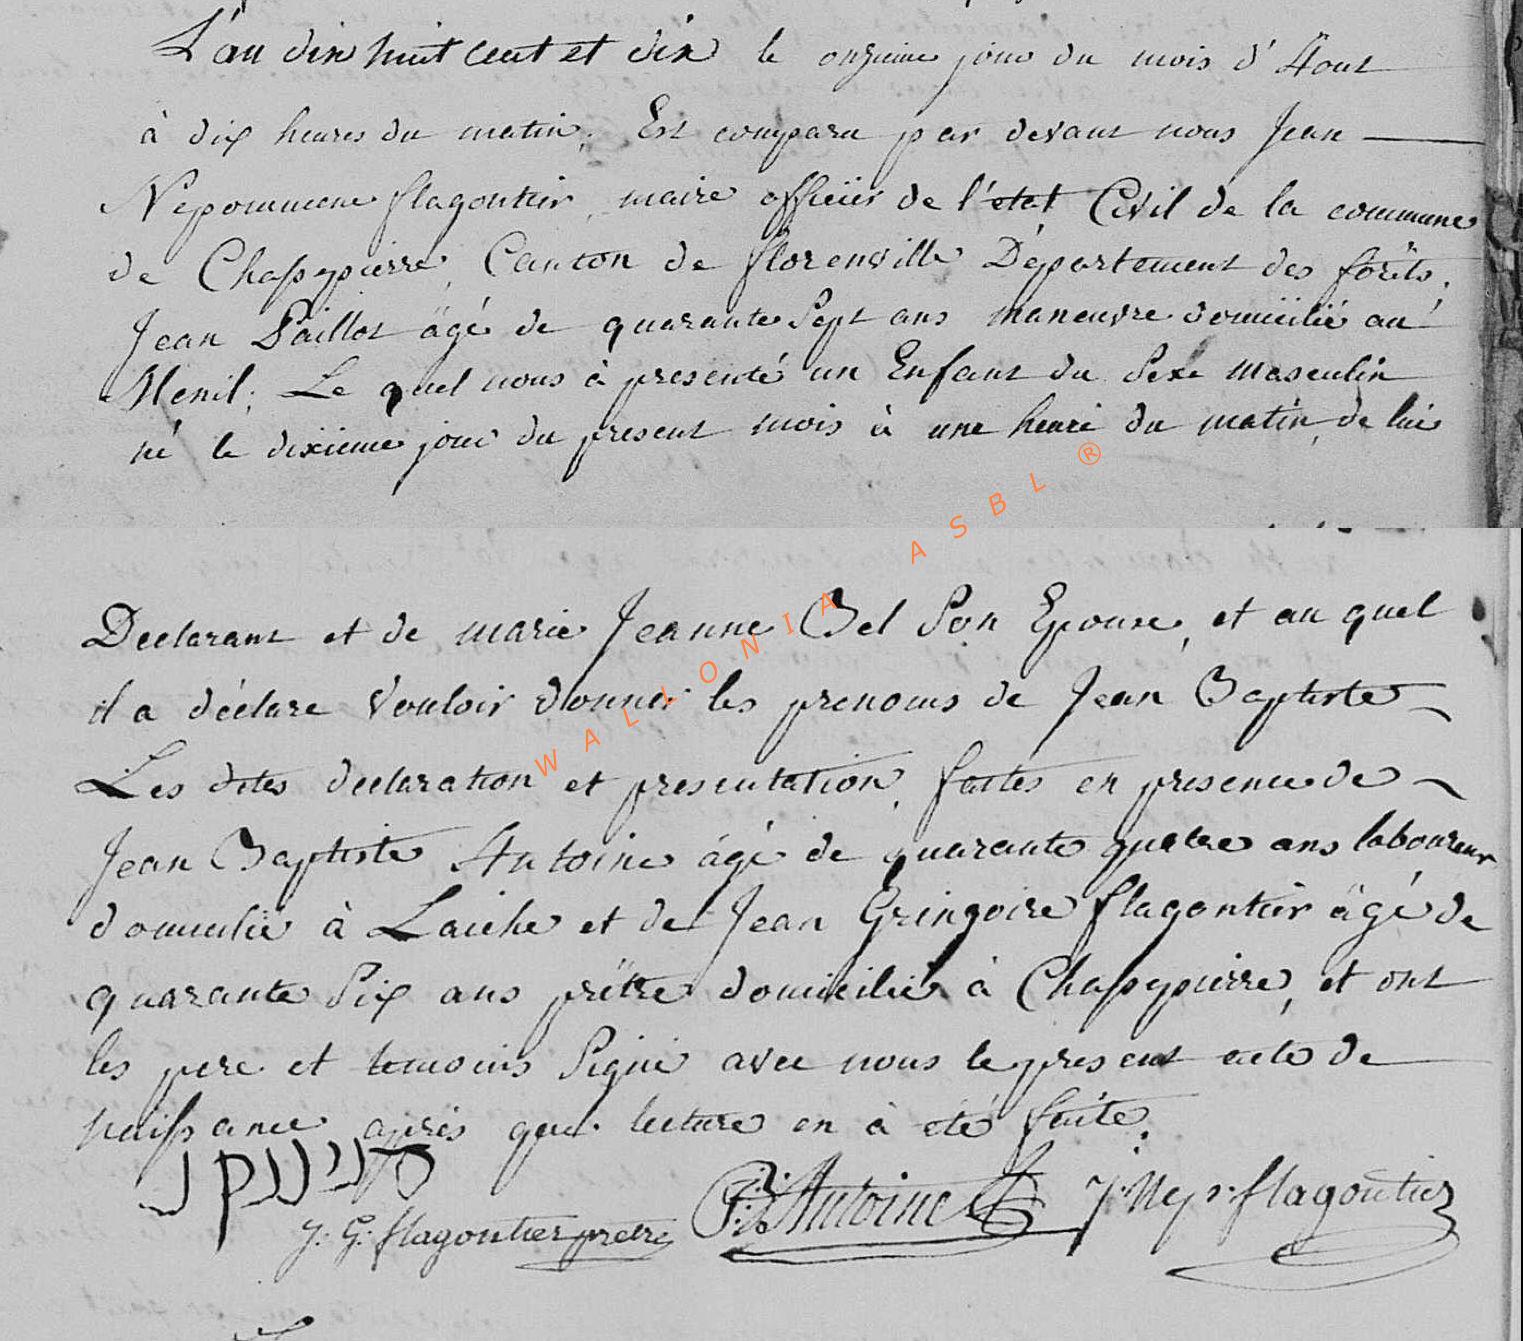 L'an dix huit cent et dix le onzieme jour du mois d'Aout
à dix heures du matin. Est comparu par devant nous Jean
Nepomucene flagontier, maire officier de l'état Civil de la commune
de Chassepierre, Canton de florenville Département des forêts.
Jean Paillot âgé de quarante Sept ans maneuvre domicilié au
Menil; Le quel nous à presenté un Enfant du Sexe masculin
né le dixieme jour du present mois à une heure du matin, de lui
Declarant et de marie Jeanne Bel Son Epouse, et au quel
il a déclaré vouloir donner les prenoms de Jean Baptiste
Les dites declaration et presentation, faites en presence de
Jean Baptiste Antoine âgé de quarante quatre ans laboureur
domicilié à Laiche et de Jean Gringoire flagontier âgé de
quarante Six ans prêtre domicilié à Chassepierre, et ont
les pere et temoins Signé avec nous le present acte de
naissance après que lecture en à été faite.
J: G: flagontier pretre
J: B: Antoine
J: Nep: flagontier
WALLONIA ASBL ®